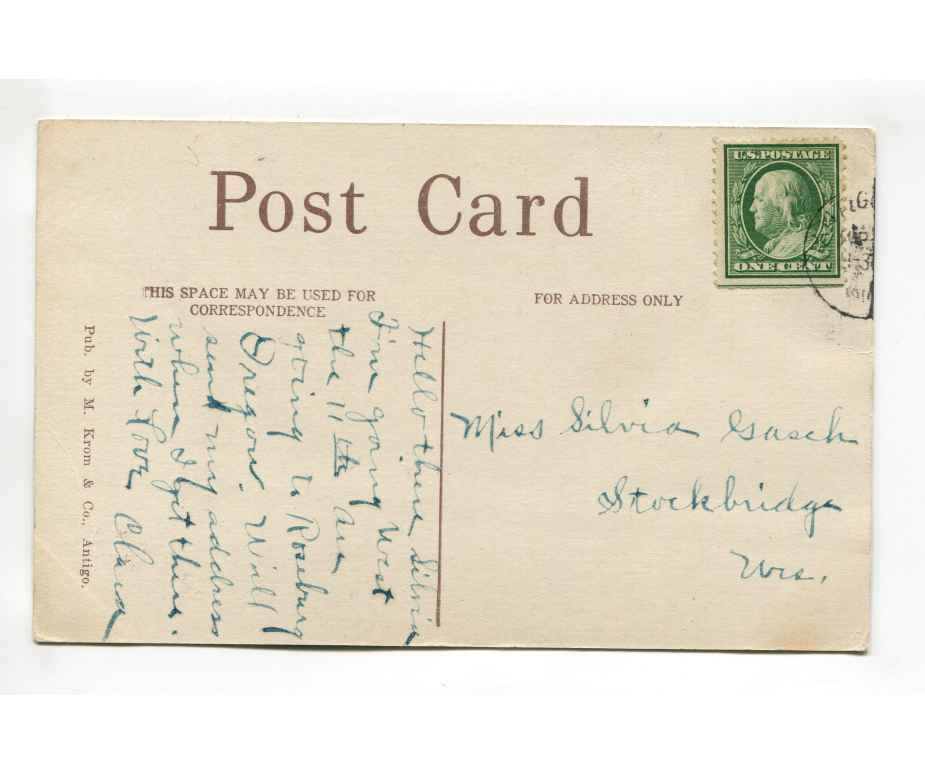 Post Card
U.S. POSTAGE
ONE CENT
THIS SPACE MAY BE USED FOR
CORRESPONDENCE
FOR ADDRESS ONLY
Hello there Silvia
I'm going West
the 11th
going to Roseburg
Oregon. Will
send my address
when I get there.
With Love Clara
Miss Silvia Gasch
Stockbridge
Wis.
Pub. by M. Krom & Co., Antigo.